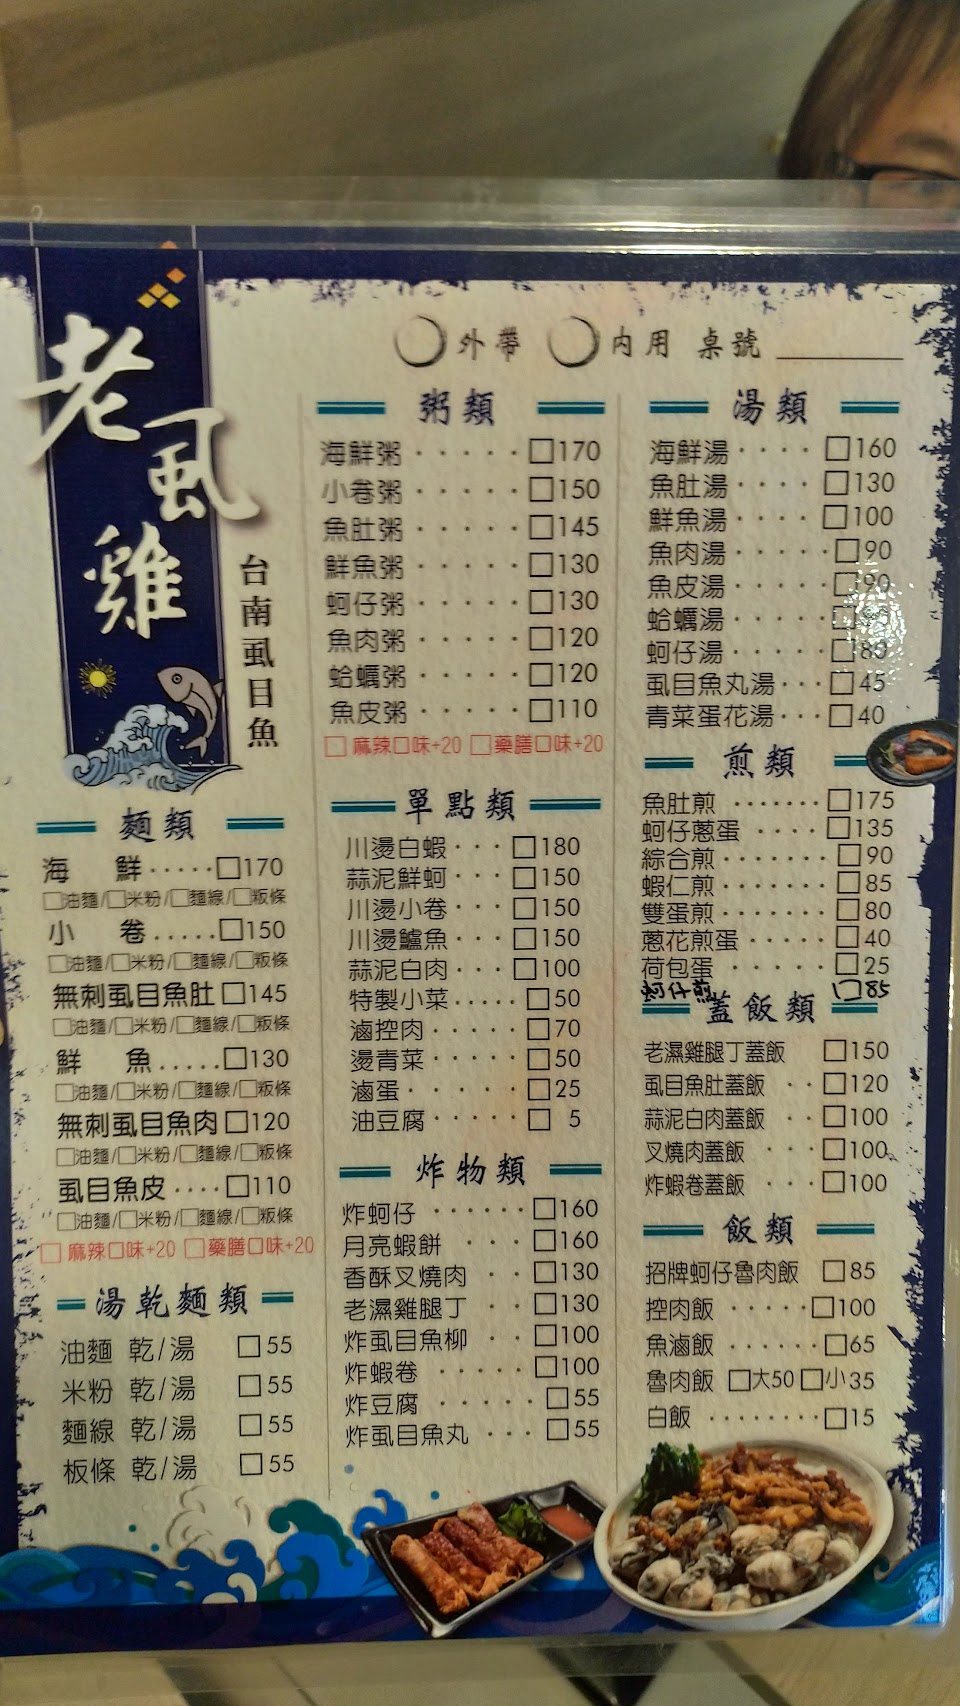 老虱雞
台南虱目魚
○外帶 ○內用 桌號
麵類
海 鮮·····□170
□油麵/□米粉/□麵線/□粄條
小 卷·····□150
□油麵/□米粉/□麵線/□粄條
無刺虱目魚肚□145
□油麵/□米粉/□麵線/□粄條
鮮 魚·····□130
□油麵/□米粉/□麵線/□粄條
無刺虱目魚肉□120
□油麵/□米粉/□麵線/□粄條
虱目魚皮····□110
□油麵/□米粉/□麵線/□粄條
□ 麻辣口味+20 □藥膳口味+20
湯乾麵類
油麵 乾/湯 □55
米粉 乾/湯 □55
麵線 乾/湯 □55
板條 乾/湯 □55
粥類
海鮮粥·····□170
小卷粥·····□150
魚肚粥·····□145
鮮魚粥·····□130
蚵仔粥·····□130
魚肉粥·····□120
蛤蠣粥·····□120
魚皮粥·····□110
□ 麻辣口味+20 □藥膳口味+20
單點類
川燙白蝦···□180
蒜泥鮮蚵···□150
川燙小卷···□150
川燙鱸魚···□150
蒜泥白肉···□100
特製小菜·····□50
滷控肉·····□70
燙青菜·····□50
滷蛋······□25
油豆腐·····□ 5
炸物類
炸蚵仔 ······□160
月亮蝦餅 ····□160
香酥叉燒肉 ··□130
老濕雞腿丁 ··□130
炸虱目魚柳 ··□100
炸蝦卷 ·····□100
炸豆腐 ······□55
炸虱目魚丸 ···□55
湯類
海鮮湯····□160
魚肚湯····□130
鮮魚湯····□100
魚肉湯·····□90
魚皮湯·····□90
蛤蠣湯·····□
蚵仔湯·····□80
虱目魚丸湯···□45
青菜蛋花湯···□40
煎類
魚肚煎 ·······□175
蚵仔蔥蛋 ····□135
綜合煎·······□90
蝦仁煎·······□85
雙蛋煎·······□80
蔥花煎蛋·····□40
荷包蛋 ·····□25
蚵仔煎 □85
蓋飯類
老濕雞腿丁蓋飯 □150
虱目魚肚蓋飯 ··□120
蒜泥白肉蓋飯 ··□100
叉燒肉蓋飯 ···□100
炸蝦卷蓋飯 ···□100
飯類
招牌蚵仔魯肉飯 □85
控肉飯 ·····□100
魚滷飯 ······□65
魯肉飯 □大50 □小35
白飯 ········□15